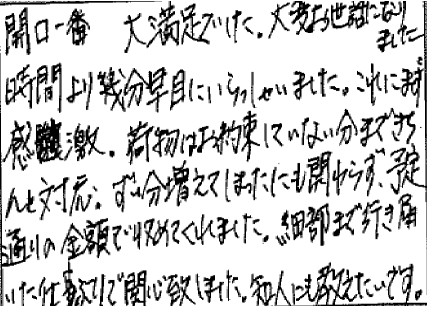 開口一番 大満足でした。大変お世話になり
ました
時間より幾分早目にいらっしゃいました。これにまず
感激。荷物はお約束していない分まできち
んと対応。ずい分増えてしまったにも関わらず、予定
通りの金額で収めてくれました。細部まで行き届
いた仕事ぶりで関心致しました。知人にも教えたいです。